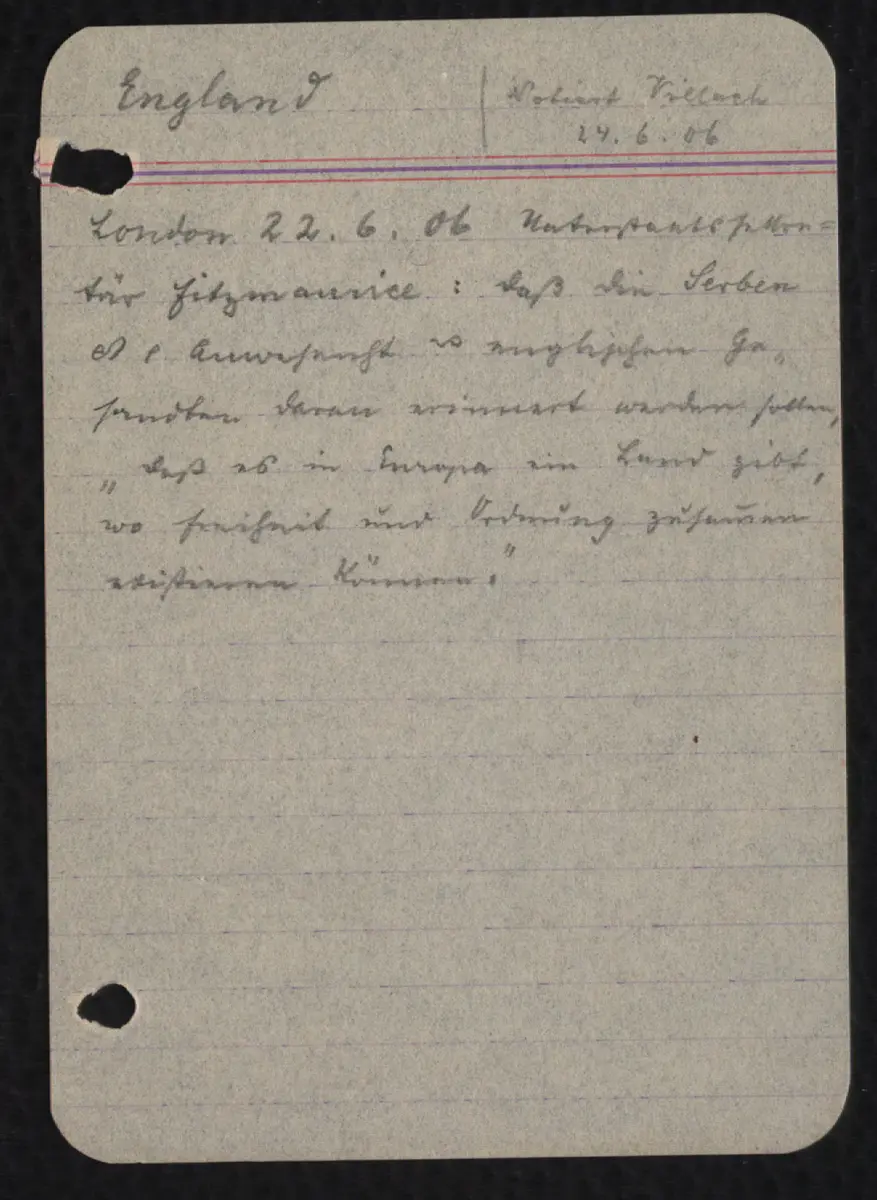 England
Notiert Villach
24. 6. 06
London 22. 6. 06 Unterstaatssekre=
tär Fitzmaurice : daß die Serben
Anwesenheit englischen Ge„
sandten daran erinnert werden sollen,
„daß es in Europa ein Land gibt,
wo Freiheit und Ordnung zusam̅en
existieren können."